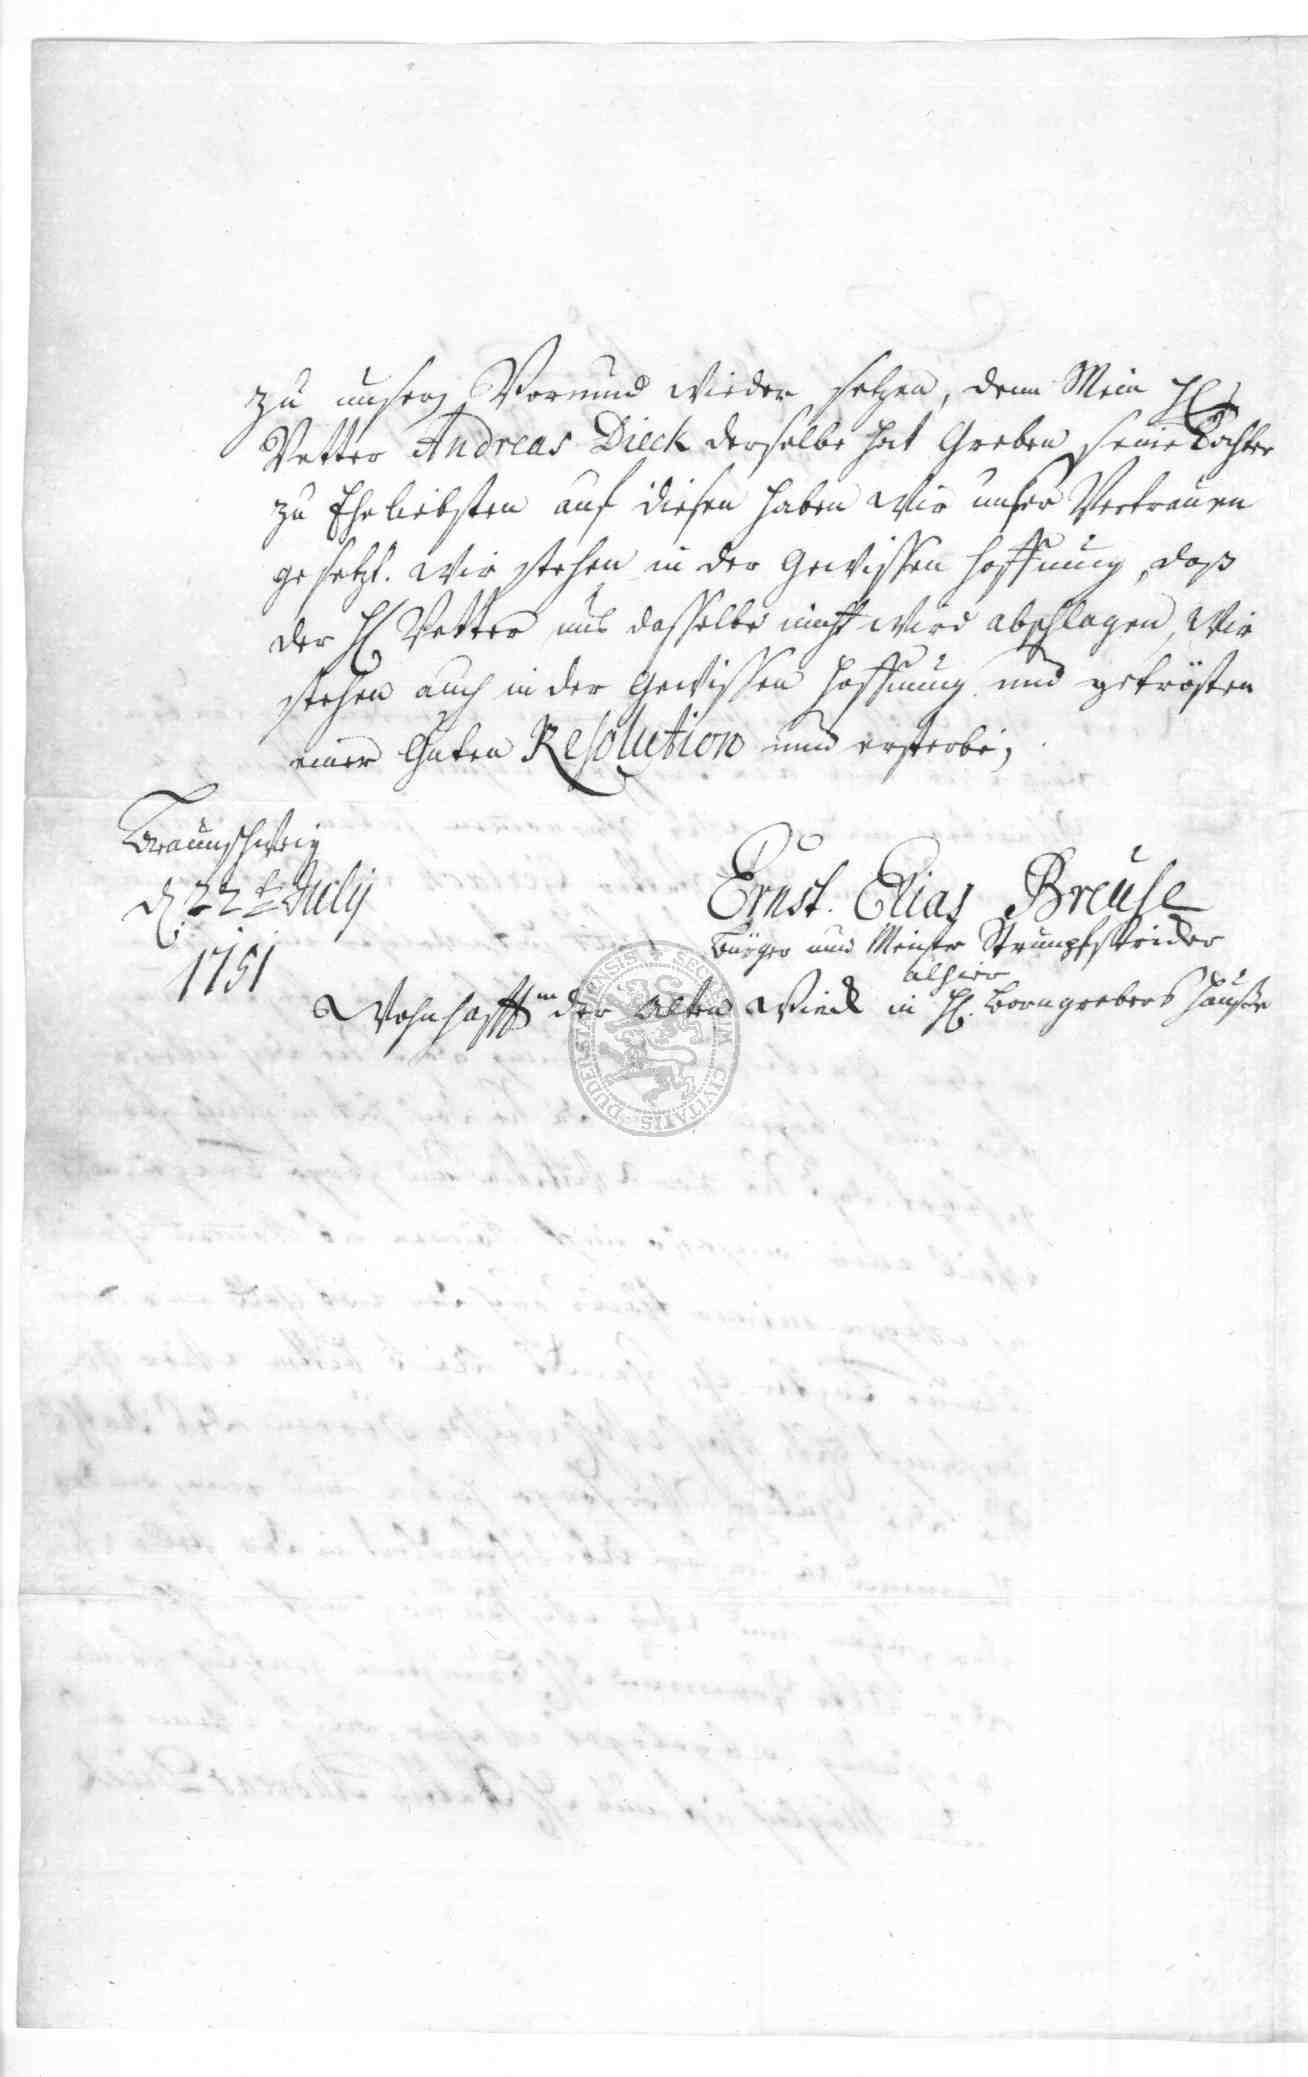 zu unserg Vormund wieder setzen, denn Mein H
Vetter Andreas Dieck derselbe hat Greben seine Tochter
zu Eheliebsten auf diesen haben wir unser Vertrauen
gesetzt. wir stehen in der gewissen hoffnung, daß
der H Vetter uns dasselbe nicht wird abschlagen, wir
stehen auch in der gewissen hoffnung und getrösten
einer Guten Resolution und ersterbe,
Braunschweig
d. 22 t July
1751
Ernst. Elias Breuse
Bürger und Meister Strumpfstricker
alhier
Wohnhafft in der alten Wieck in H. Borngrebers Hauße
SECRETUM CIVITATIS DUDERSTADENSIS